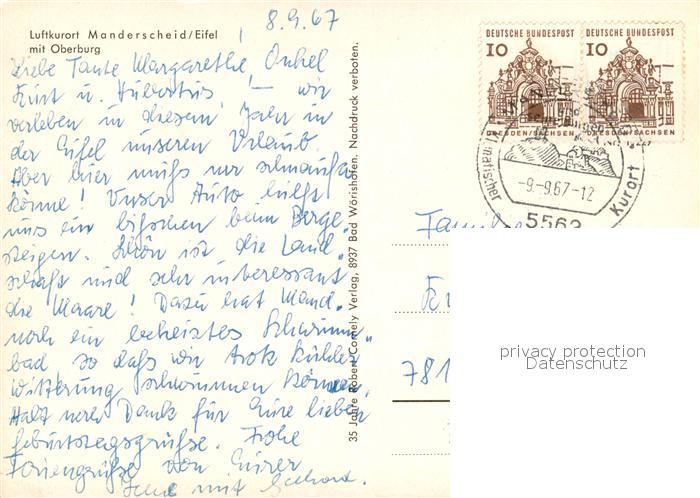 8.9.67
Luftkurort Manderscheid/Eifel
mit Oberburg
Liebe Tante Margarethe, Onkel
Kurt u. Hubertus! – wir
verleben in diesem Jahr in
der Eifel unseren Urlaub.
Aber hier muß nur
könne! Unser Auto hilft
uns ein bißchen beim Berge-
steigen. Schön ist die Land-
schaft und sehr interessant
die Maare! Dazu hat Mand.
noch ein beheiztes Schwimm-
bad so daß wir trotz kühler
Witterung schwimmen können.
noch Dank für Eure lieben
Geburtstagsgrüße. Frohe
Feriengrüße von Eurer
mit
35 Jahre Robert Cornely Verlag, 8937 Bad Wörishofen. Nachdruck verboten.
DEUTSCHE BUNDESPOST
10
DRESDEN/SACHSEN
DEUTSCHE BUNDESPOST
10
DRESDEN/SACHSEN
Klimatischer Kurort
-9.-9.67-12
5562
Familie
781
privacy protection
Datenschutz